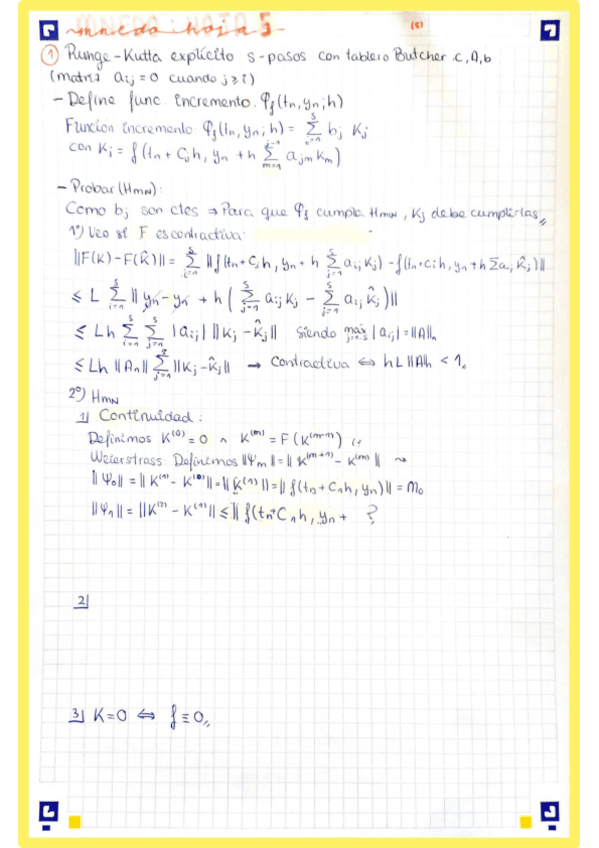 mnedo: hoja 5 (5)
① Runge-Kutta explícito s-pasos con tablero Butcher c, A, b
(matriz aij = 0 cuando j ≥ i)
- Define func. incremento. Φf(tn, yn; h)
Función incremento Φf(tn, yn; h) = Σ bj Kj
con Kj = f(tn + Cjh, yn + h Σ ajm Km)
- Probar (HMN):
Como bj son ctes ⇒ Para que Φf cumpla HMN, Kj debe cumplirlas
1º) Veo si F es contractiva:
||F(K) - F(K̂)|| = Σ ||f(tn + Cih, yn + h Σ aij Kj) - f(tn + cih, yn + h Σ aij K̂j)||
≤ L Σ || yn - yn + h ( Σ aij Kj - Σ aij K̂j )||
≤ Lh Σ Σ |aij| ||Kj - K̂j|| siendo max |aij| = ||A||
≤ Lh ||A|| Σ ||Kj - K̂j|| → Contractiva ⇔ hL ||A|| < 1.
2º) HMN
1) Continuidad:
Definimos K^(0) = 0 ∧ K^(m) = F(K^(m-1))
Weierstrass: Definimos ||Ψm|| = || K^(m+1) - K^(m) ||
||Ψ0|| = || K^(1) - K^(0) || = || K^(1) || = || f(tn + C1h, yn)|| = M0
||Ψ1|| = ||K^(2) - K^(1)|| ≤ || f(tn + C1h, yn + ?
2)
3) K=0 ⇔ f ≡ 0